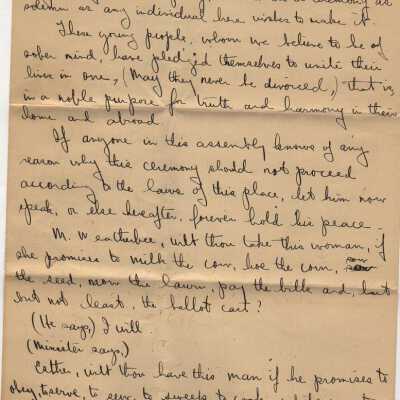 solemn as any individual here wishes to make it.
These young people, whom we believe to be of
sober mind, have pledged themselves to unite their
lives in one, (May they never be divorced,) that is,
in a noble purpose for truth and harmony in their
home and abroad.
If anyone in this assembly knows of any
reason why this ceremony should not proceed
according to the laws of this place, let him now
speak, or else hereafter forever hold his peace.
M. Weatherbee, wilt thou take this woman, if
she promises to milk the cow, hoe the corn, sow
the seed, mow the lawn, pay the bills and, last
but not least, the ballot cast?
(He says,) I will.
(Minister says,)
Esther, wilt thou have this man if he promises to
obey, to serve, to sew, to sweep, to